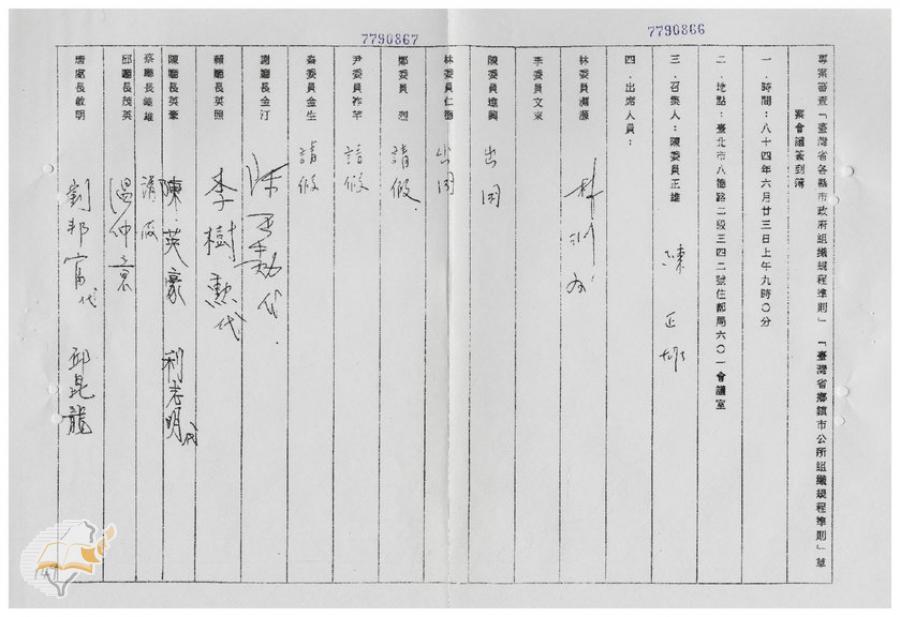 7790866
7790867
專案審查「臺灣省各縣市政府組織規程準則」「臺灣省鄉鎮市公所組織規程準則」草
案會議簽到簿
一．時間：八十四年六月廿三日上午九時〇分
二．地點：臺北市八德路二段三四二號住都局六〇一會議室
三．召集人：陳委員正雄 陳正雄
四．出席人員：
林委員
李委員文來
陳委員進興 出國
林委員仁德 出國
鄭委員 烈 請假
尹委員祚芊 請假
秦委員金生 請假
謝廳長金汀 代
賴廳長英照 李樹勲代
陳廳長英豪 陳英豪 利光明代
蔡廳長 雄 請假
邱廳長茂英
唐處長啟明 劉邦富代 邱昆龍